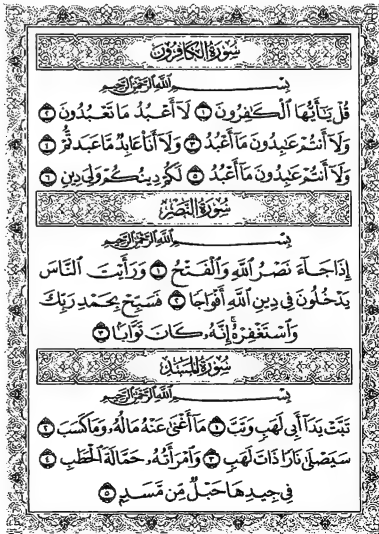 سُورَةُ الْكَافِرُونَ
بِسْمِ اللَّهِ الرَّحْمَٰنِ الرَّحِيمِ
قُلْ يَٰٓأَيُّهَا ٱلْكَٰفِرُونَ ١ لَآ أَعْبُدُ مَا تَعْبُدُونَ ٢
وَلَآ أَنتُمْ عَٰبِدُونَ مَآ أَعْبُدُ ٣ وَلَآ أَنَا۠ عَابِدٌ مَّا عَبَدتُّمْ ٤
وَلَآ أَنتُمْ عَٰبِدُونَ مَآ أَعْبُدُ ٥ لَكُمْ دِينُكُمْ وَلِيَ دِينِ ٦
سُورَةُ النَّصْرِ
بِسْمِ اللَّهِ الرَّحْمَٰنِ الرَّحِيمِ
إِذَا جَآءَ نَصْرُ ٱللَّهِ وَٱلْفَتْحُ ١ وَرَأَيْتَ ٱلنَّاسَ
يَدْخُلُونَ فِى دِينِ ٱللَّهِ أَفْوَاجًا ٢ فَسَبِّحْ بِحَمْدِ رَبِّكَ
وَٱسْتَغْفِرْهُ ۚ إِنَّهُۥ كَانَ تَوَّابًۢا ٣
سُورَةُ المَسَدِ
بِسْمِ اللَّهِ الرَّحْمَٰنِ الرَّحِيمِ
تَبَّتْ يَدَآ أَبِى لَهَبٍ وَتَبَّ ١ مَآ أَغْنَىٰ عَنْهُ مَالُهُۥ وَمَا كَسَبَ ٢
سَيَصْلَىٰ نَارًا ذَاتَ لَهَبٍ ٣ وَٱمْرَأَتُهُۥ حَمَّالَةَ ٱلْحَطَبِ ٤
فِى جِيدِهَا حَبْلٌ مِّن مَّسَدٍۭ ٥